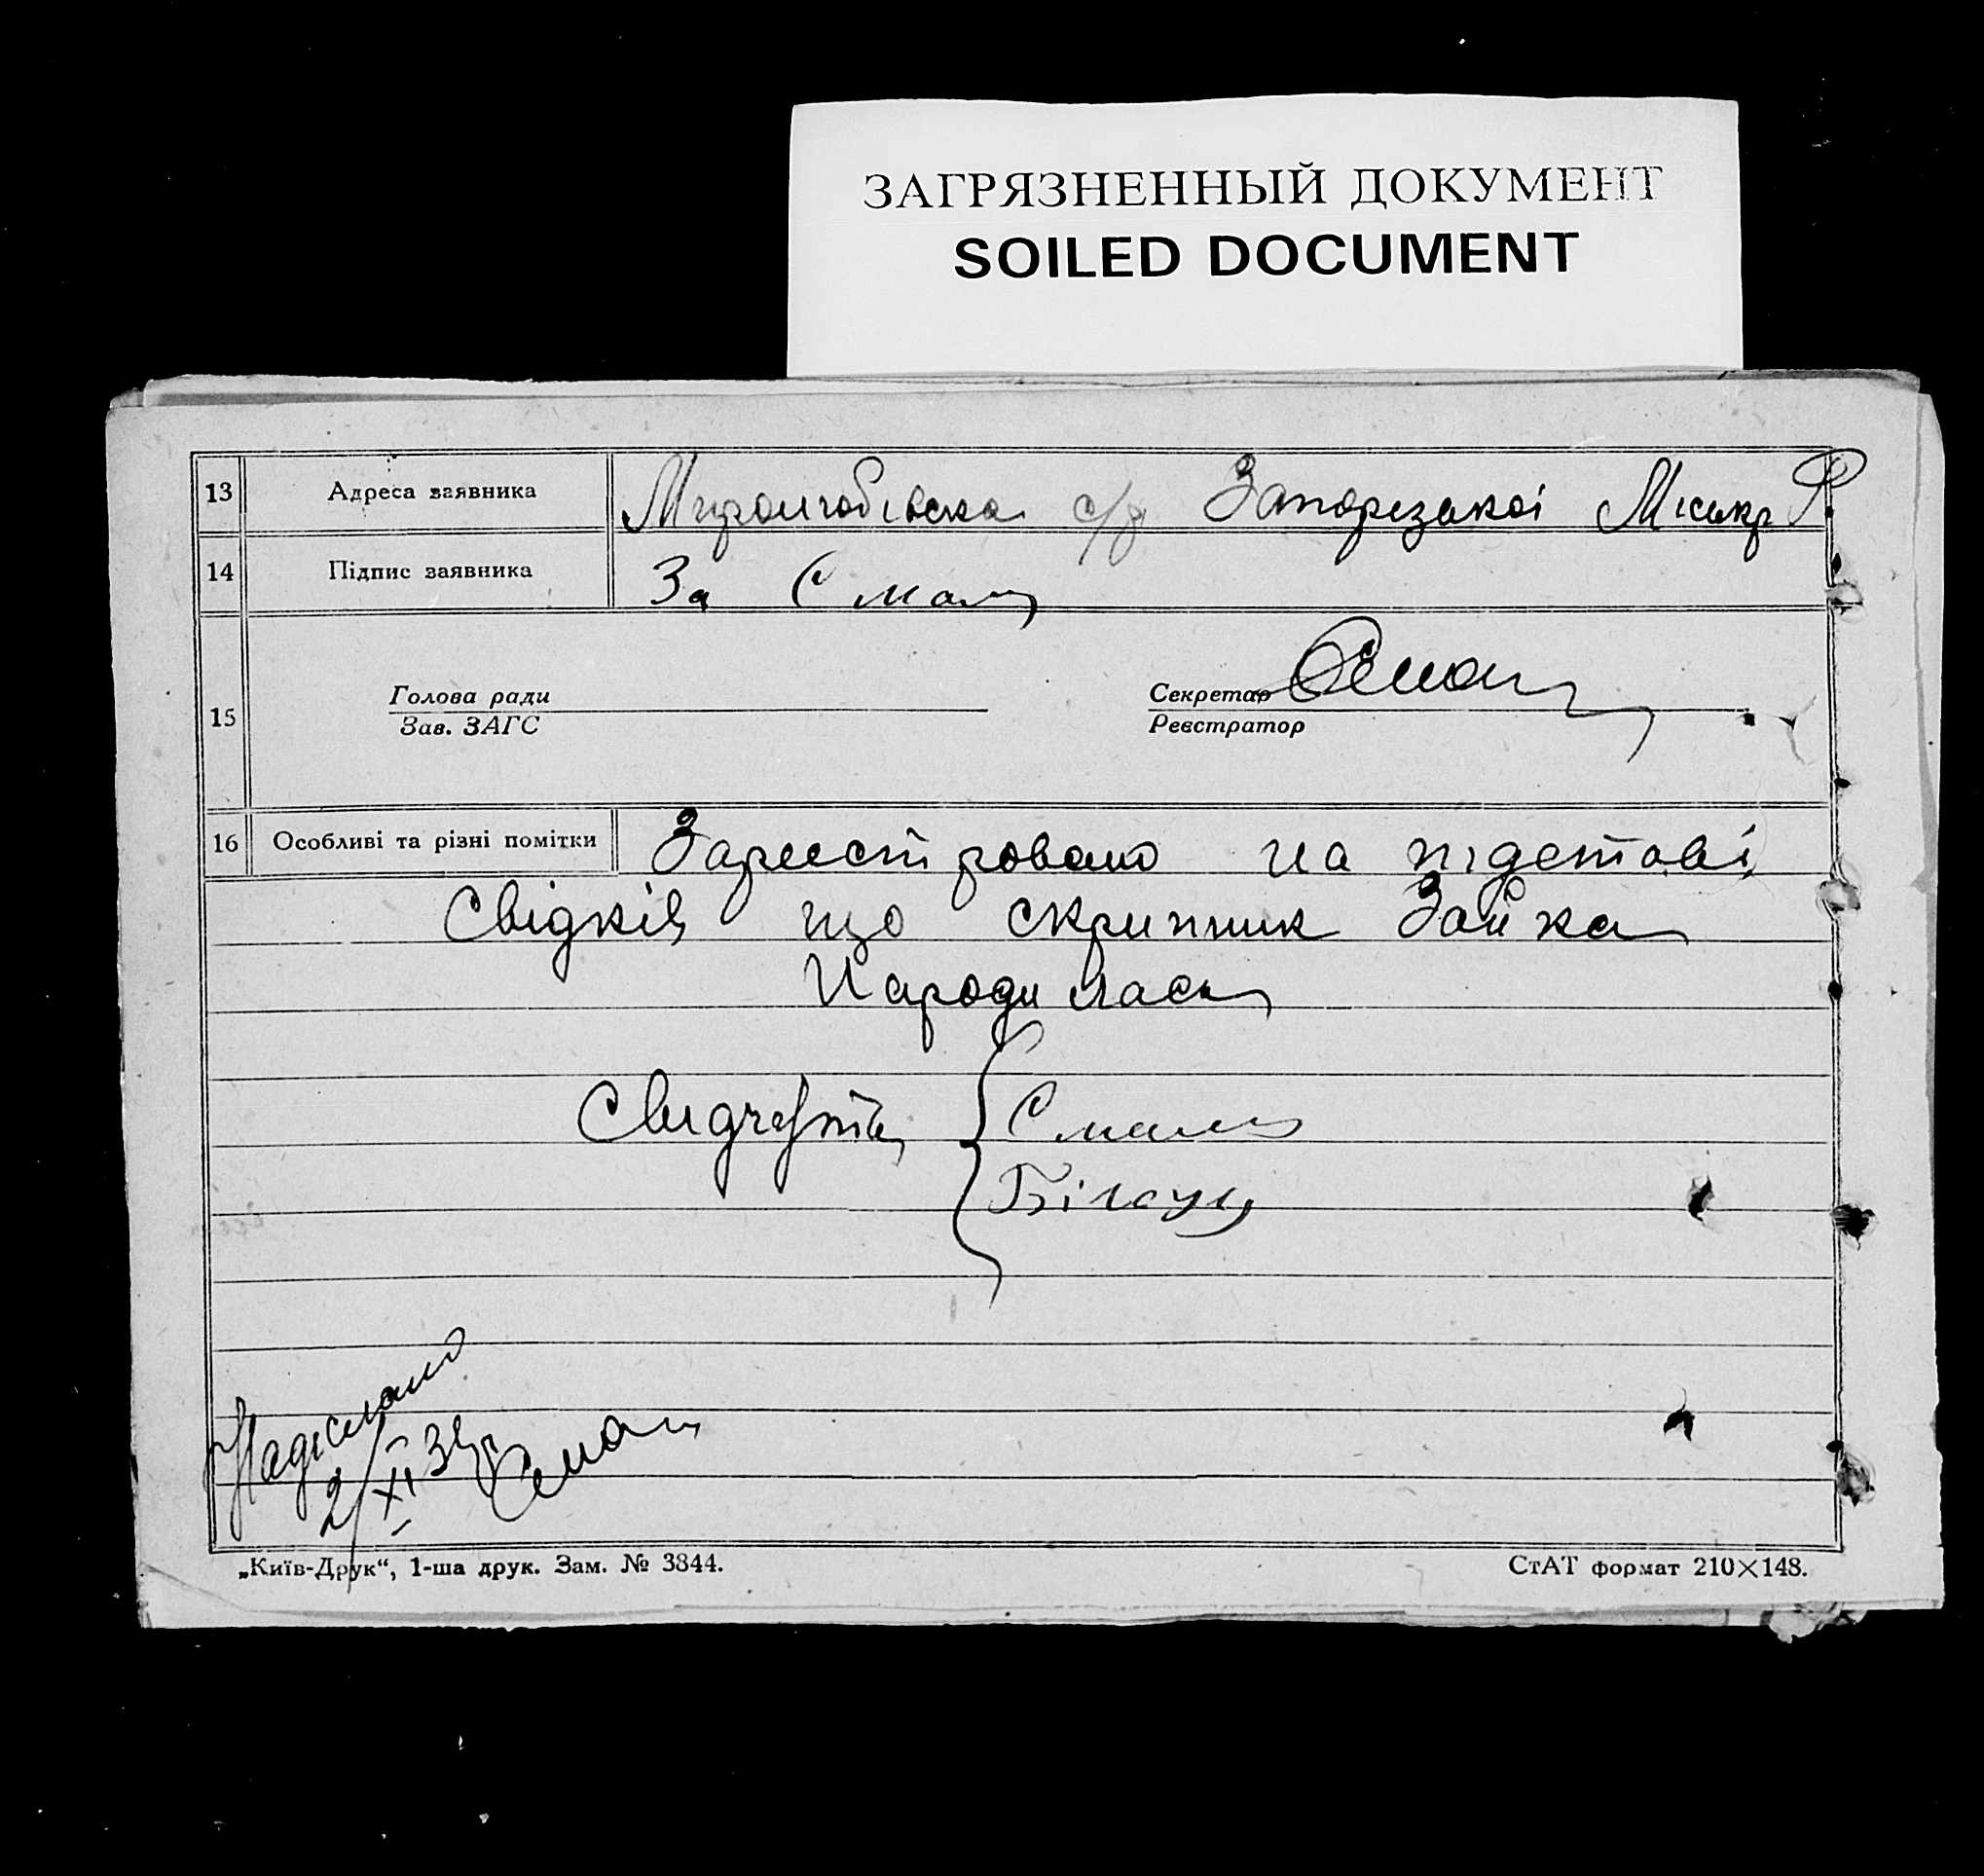 ЗАГРЯЗНЕННЫЙ ДОКУМЕНТ
SOILED DOCUMENT
13 Адреса заявника с/р Запорізької Міськр
14 Підпис заявника За Смаль
15 Голова ради Секретар
Зав. ЗАГС Реєстратор
16 Особливі та різні помітки Зареєстровано на підставі
Свідків що скрипник Зайка
Народилась
Смаль
Надіслано
2/XI 34р
„Київ-Друк“, 1-ша друк. Зам. № 3844. СтАТ формат 210×148.